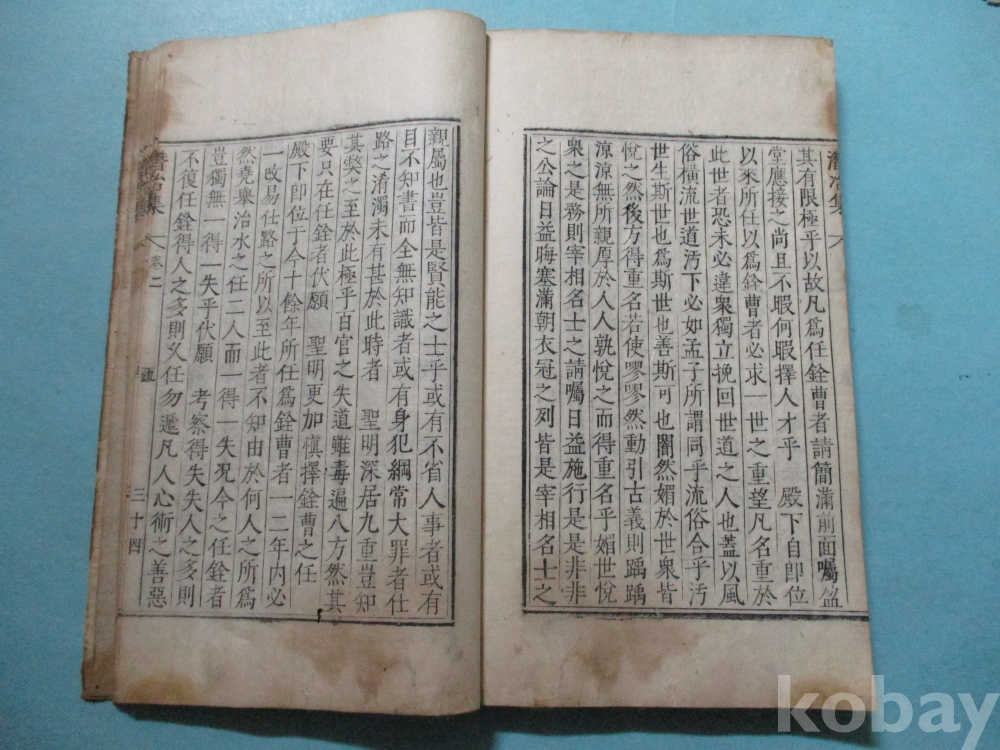 其有限極乎以故凡爲任銓曹者請簡滿前面囑盈
堂應接之尚且不暇何暇擇人才乎 殿下自卽位
以來所任以爲銓曹者必求一世之重望凡名重於
此世者恐未必違衆獨立挽回世道之人也蓋以風
俗橫流世道汚下必如孟子所謂同乎流俗合乎汚
世生斯世也爲斯世也善斯可也閹然媚於世衆皆
悅之然後方得重名若使嘐嘐然動引古義則踽踽
凉凉無所親厚於人人孰悅之而得重名乎媚世悅
衆之是務則宰相名士之請囑日益施行是是非非
之公論日益晦塞滿朝衣冠之列皆是宰相名士之
親屬也豈皆是賢能之士乎或有不省人事者或有
目不知書而全無知識者或有身犯綱常大罪者仕
路之淆濁未有甚於此時者 聖明深居九重豈知
其弊之至於此極乎百官之失道雖毒遍八方然其
要只在任銓者伏願 聖明更加愼擇銓曹之任
殿下卽位于今十餘年所任爲銓曹者一二年內必
一改易仕路之所以至此者不知由於何人之所爲
然堯舉治水之任二人而一得一失况今之任銓者
豈獨無一得一失乎伏願 考察得失失人之多則
不復任銓得人之多則又任勿遞凡人心術之善惡
集 卷二 疏 三十四